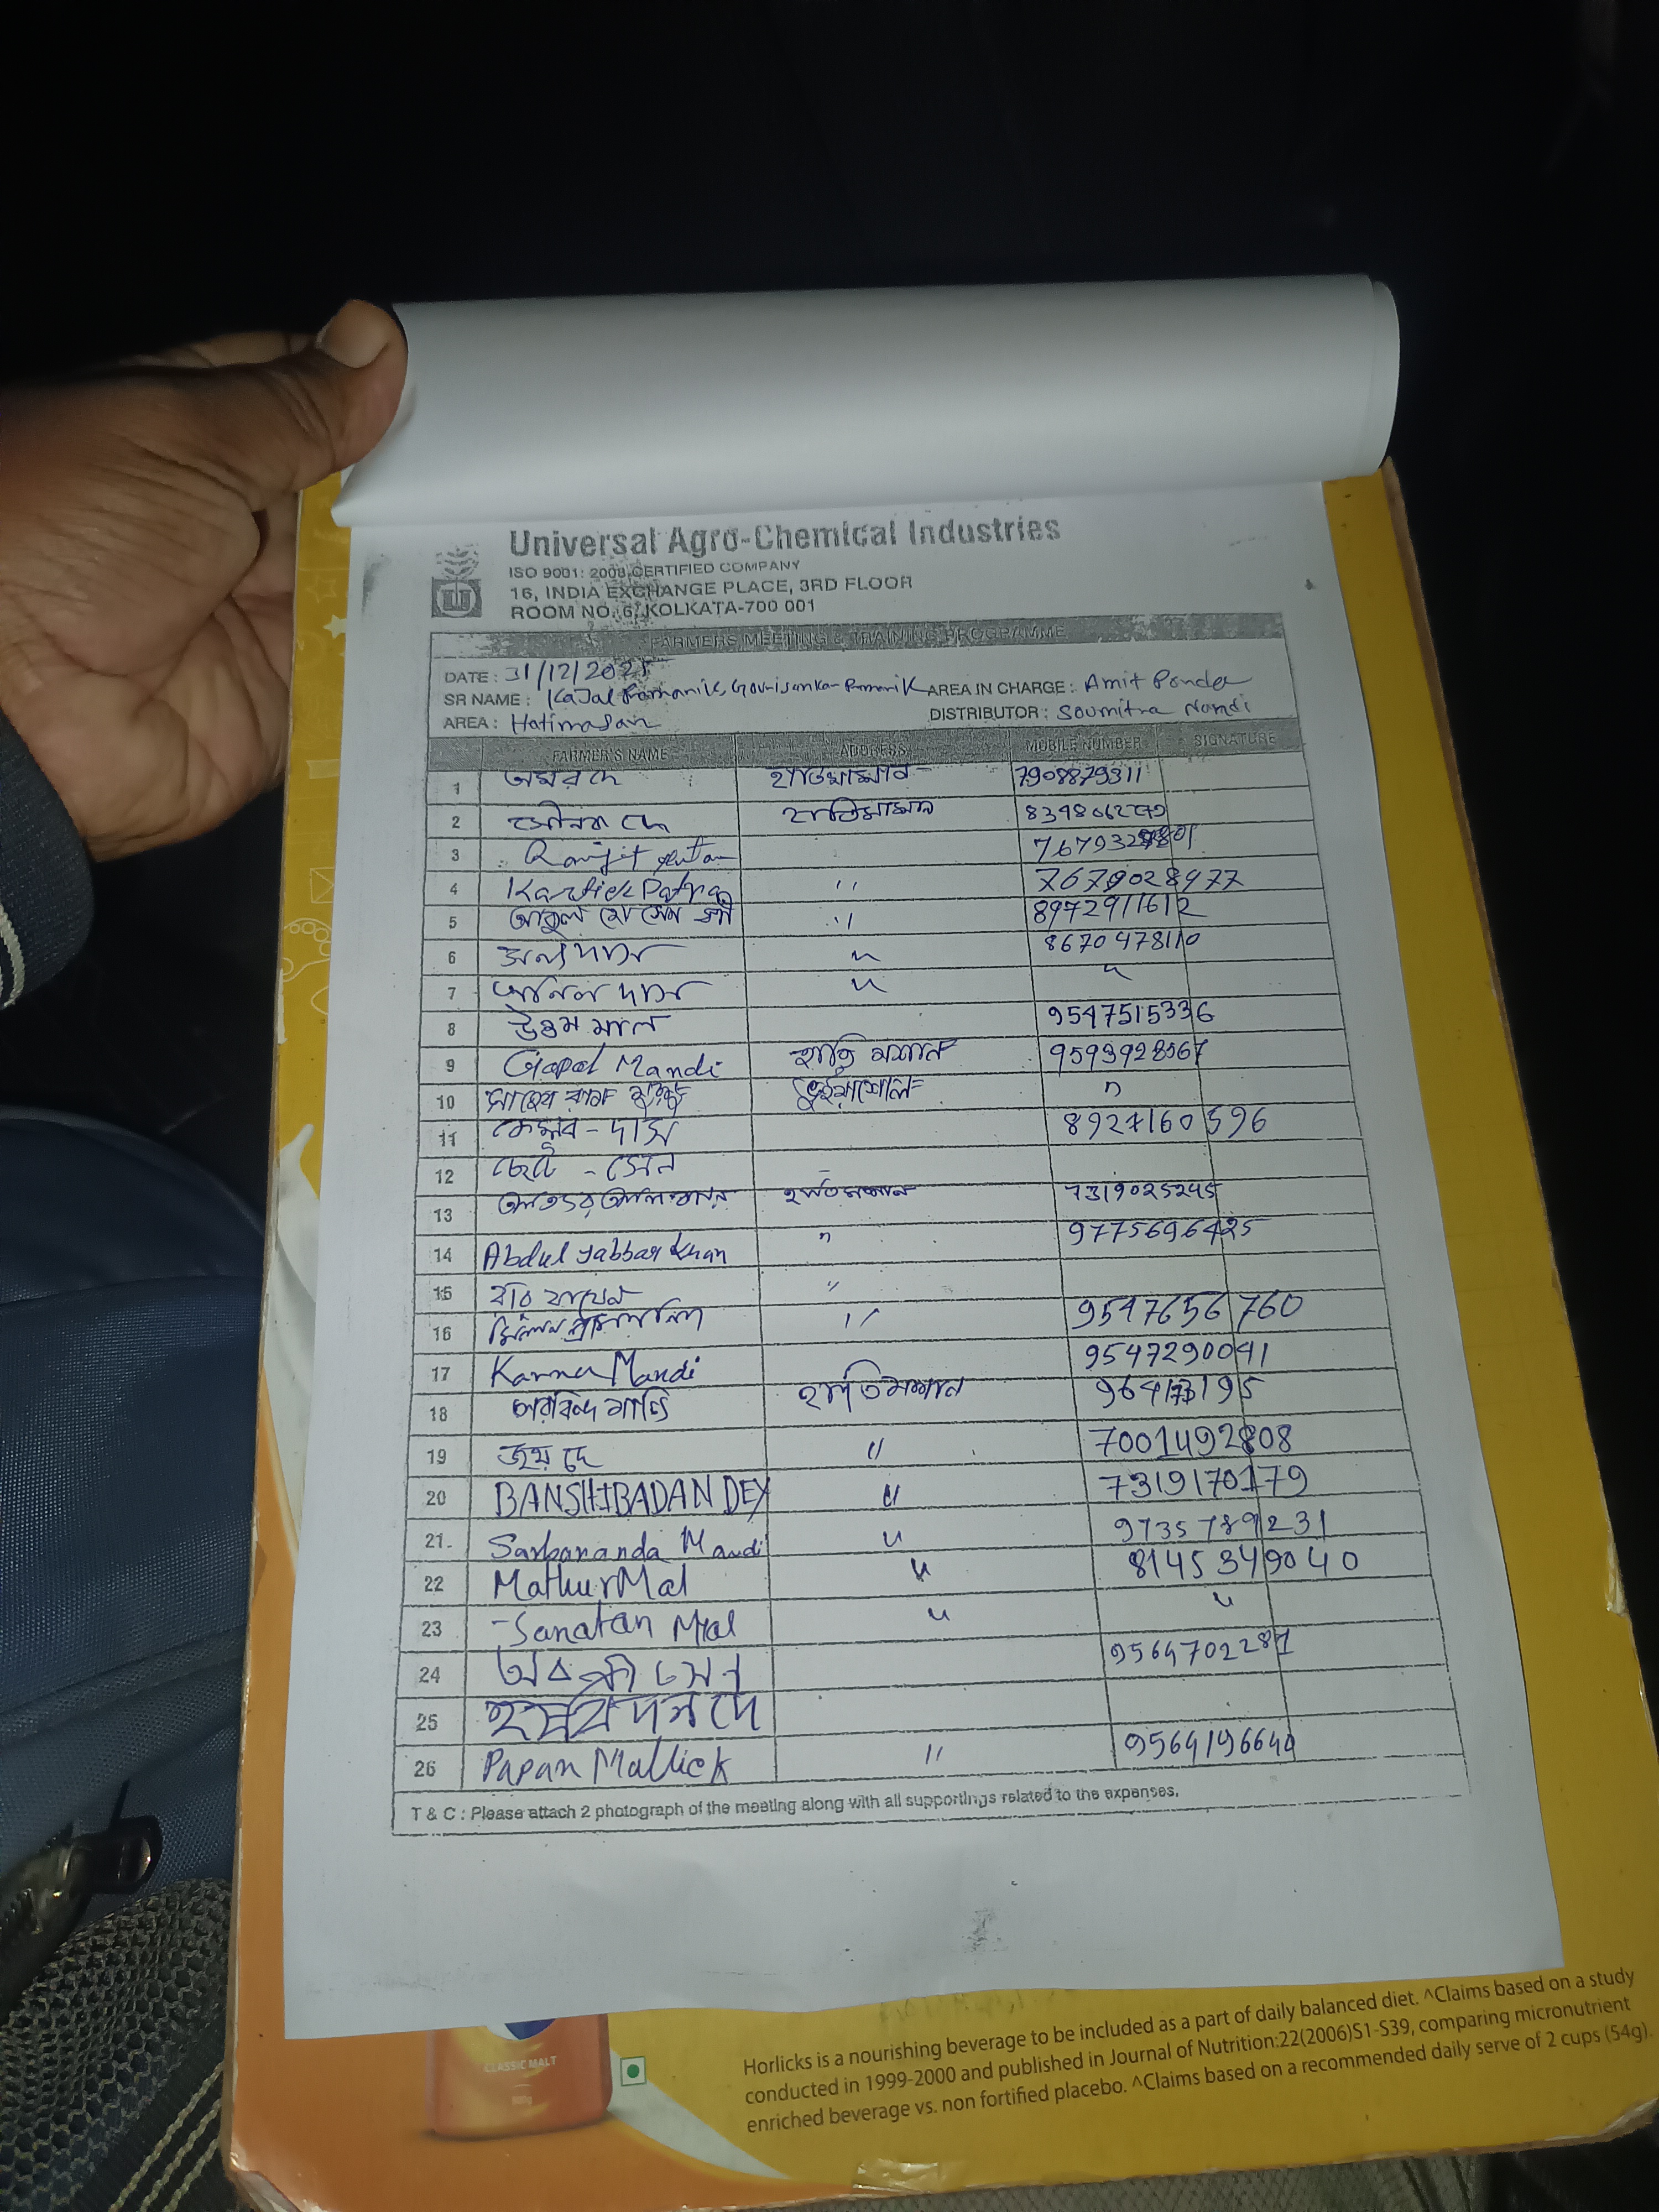 Universal Agro-Chemical Industries
ISO 9001: 2008 CERTIFIED COMPANY
16, INDIA EXCHANGE PLACE, 3RD FLOOR
ROOM NO. 6, KOLKATA-700 001
FARMERS MEETING & TRAINING PROGRAMME
DATE : 31/12/2025
SR NAME : Kajal Pramanik, Gourisankar Pramanik AREA IN CHARGE : Amit Panda
AREA : Hatimasan DISTRIBUTOR : Soumitra Nandi
FARMER'S NAME ADDRESS MOBILE NUMBER SIGNATURE
1 অমর দে 7908879311
2 সৌরভ দে
3 Ranjit
4 Kartick Patra " 7679028977
5 " 8972911612
6 দাস " 8670478110
7 অনিল দাস " "
8 উত্তম মাল 9547515336
9 Gopal Mandi হাতি মশান 9593928567
10 "
11 দাস 8927160596
12 সেন
13 7319025245
14 Abdul Jabbar Khan " 9775696425
15 "
16 মিলন " 9547656760
17 Karna Mandi 9547290041
18 অরবিন্দ মান্ডি হাতিমশান
19 জয় দে " 7001492808
20 BANSHIBADAN DEY " 7319170179
21 Sarbananda Mandi " 9735789231
22 Mathur Mal " 8145349040
23 Sanatan Mal " "
24 9564702287
25 দে
26 Papan Mallick " 9564196640
T & C : Please attach 2 photograph of the meeting along with all supportings related to the expenses.
CLASSIC MALT
Horlicks is a nourishing beverage to be included as a part of daily balanced diet. ^Claims based on a study
conducted in 1999-2000 and published in Journal of Nutrition:22(2006)S1-S39, comparing micronutrient
enriched beverage vs. non fortified placebo. ^Claims based on a recommended daily serve of 2 cups (54g).